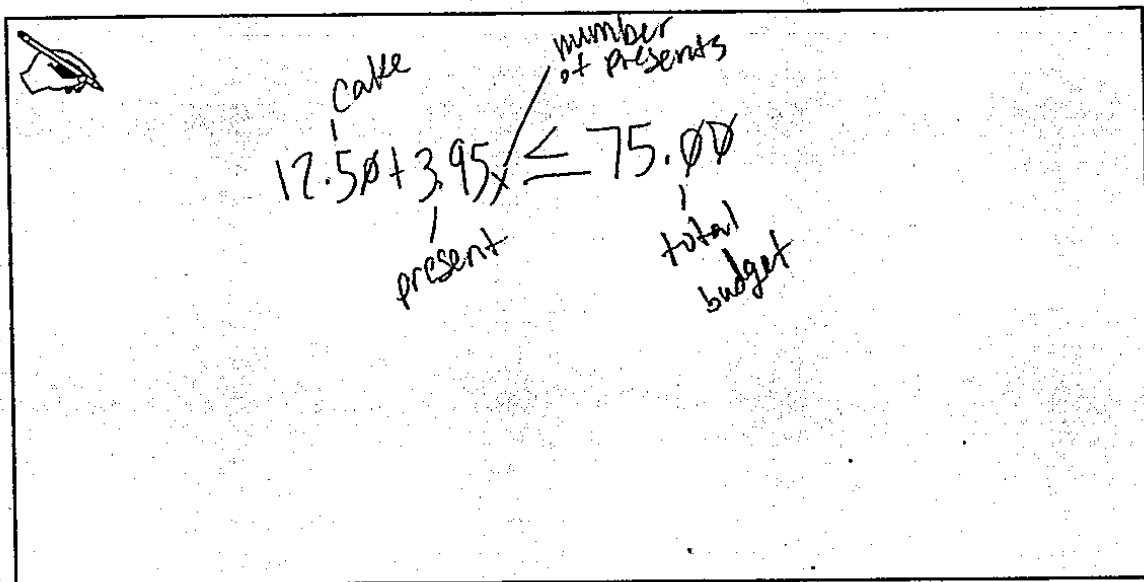 cake
number
of presents
12.50 + 3.95x ≤ 75.00
present
total
budget